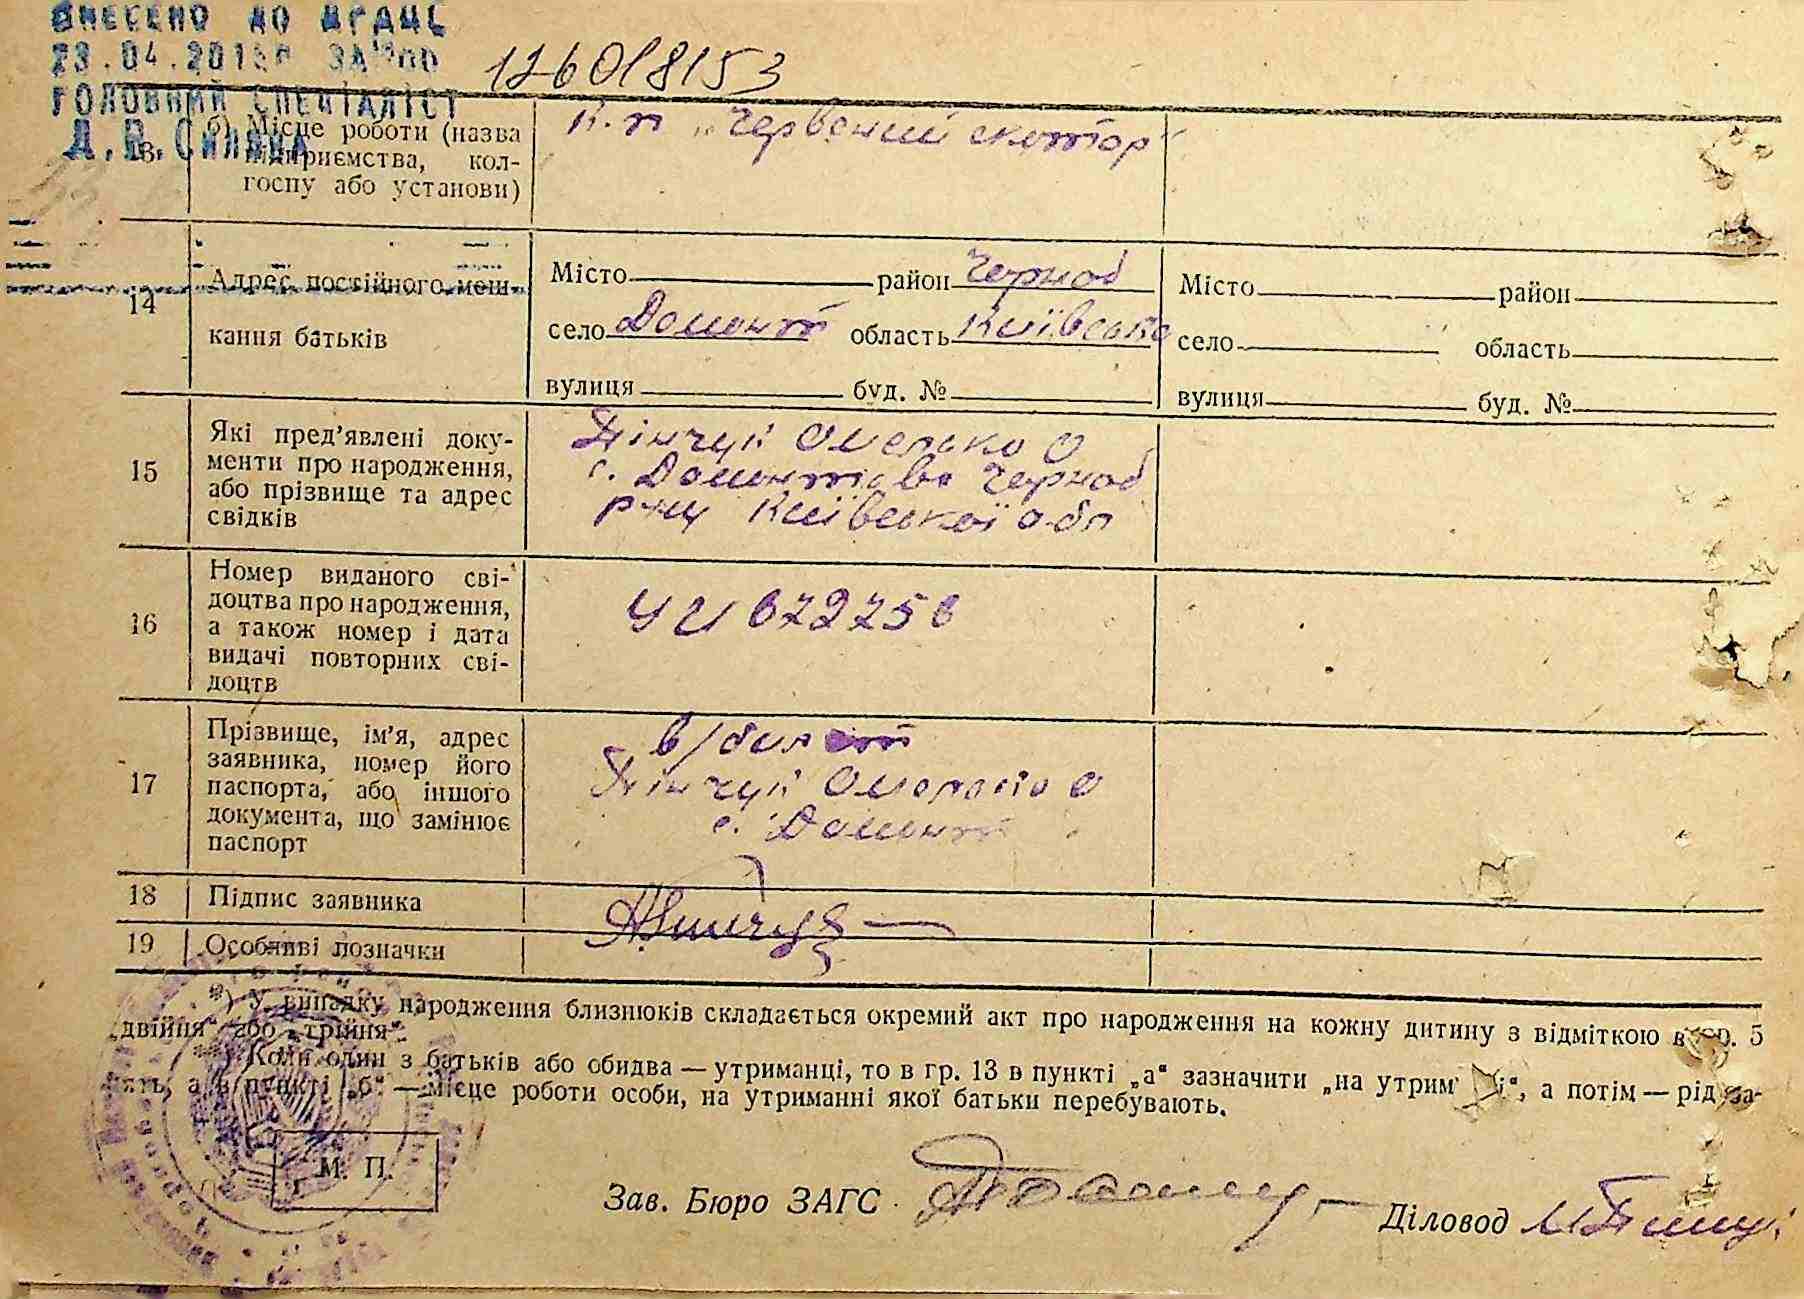 ВНЕСЕНО ДО ДРАЦС
23.04.2015р. ЗА №00
ГОЛОВНИЙ СПЕЦІАЛІСТ
126018153
13. б) Місце роботи (назва підприємства, колгоспу або установи)
к.п „Червоний
14
Адрес постійного меш-
кання батьків
Місто район Черноб
село Домонт область Київська
вулиця буд. №
Місто район
село область
вулиця буд. №
15
Які пред'явлені доку-
менти про народження,
або прізвище та адрес
свідків
Пінчук Омелько О
с. Домонтово Черноб
р-ну Київської обл
16
Номер виданого сві-
доцтва про народження,
а також номер і дата
видачі повторних сві-
доцтв
17
Прізвище, ім'я, адрес
заявника, номер його
паспорта, або іншого
документа, що замінює
паспорт
в/билет
Пінчук Омелько О
с. Домонт
18
Підпис заявника
19
Особливі позначки
*) У випадку народження близнюків складається окремий акт про народження на кожну дитину з відміткою в гр. 5
„двійня" або „трійня".
Коли один з батьків або обидва — утриманці, то в гр. 13 в пункті „а" зазначити „на утрим
а в пункті „б" — місце роботи особи, на утриманні якої батьки перебувають.
М. П.
Зав. Бюро ЗАГС
Діловод